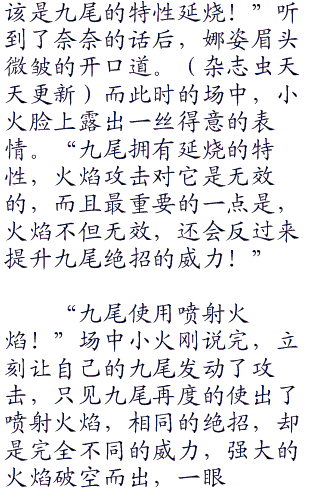 该是九尾的特性延烧！”听
到了奈奈的话后，娜姿眉头
微皱的开口道。（杂志虫天
天更新）而此时的场中，小
火脸上露出一丝得意的表
情。“九尾拥有延烧的特
性，火焰攻击对它是无效
的，而且最重要的一点是，
火焰不但无效，还会反过来
提升九尾绝招的威力！”
“九尾使用喷射火
焰！”场中小火刚说完，立
刻让自己的九尾发动了攻
击，只见九尾再度的使出了
喷射火焰，相同的绝招，却
是完全不同的威力，强大的
火焰破空而出，一眼